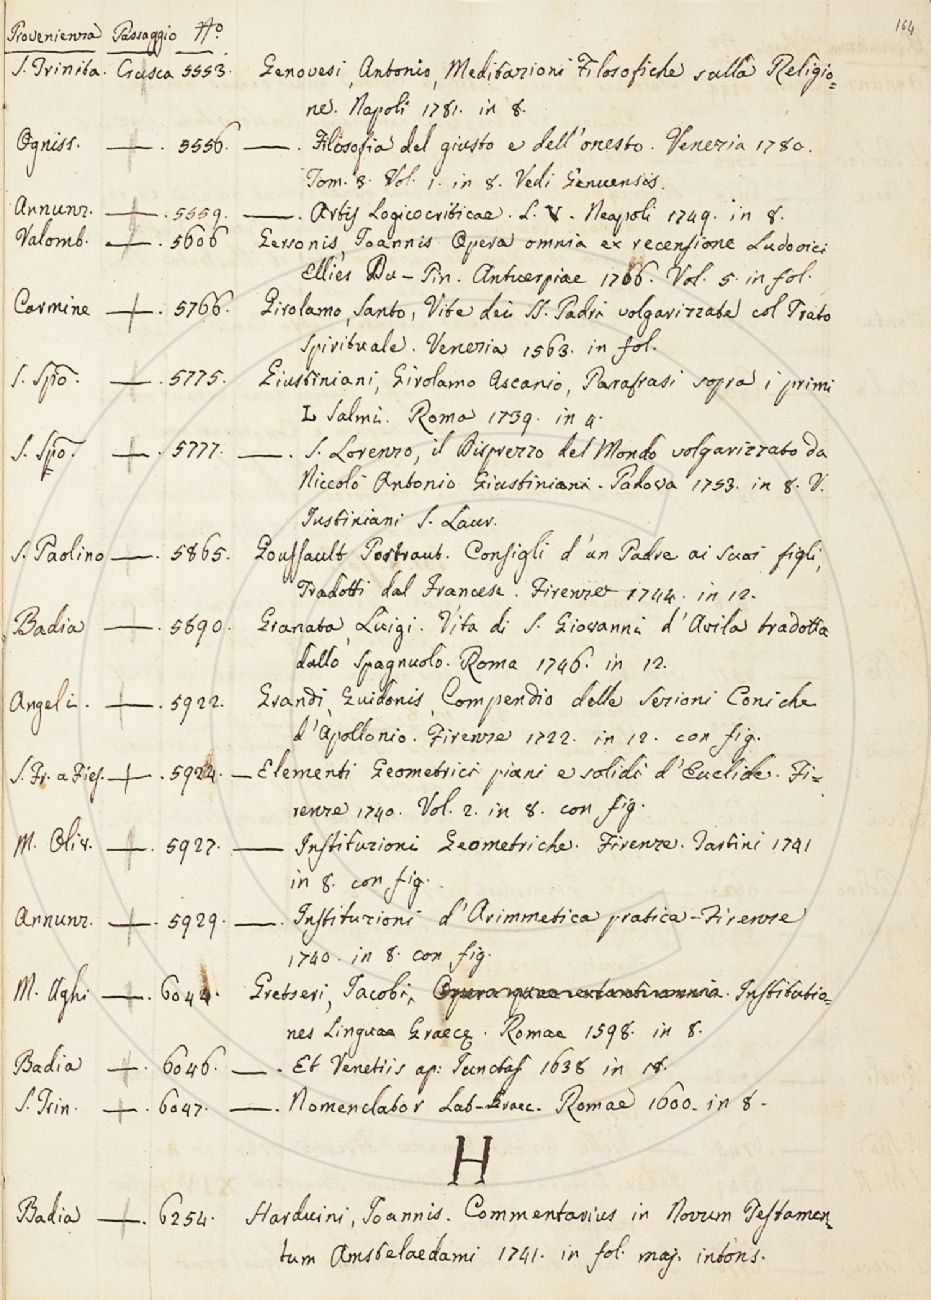 164
Provenienza Passaggio No
S. Trinita. Crusca 5553. Genovesi, Antonio, Meditazioni Filosofiche sulla Religio=
ne. Napoli 1781. in 8.
Ogniss. — . 5556. — . Filosofia del giusto e dell'onesto. Venezia 1780.
Tom. 8. Vol. 1. in 8. Vedi Genuensis.
Annunz. — . 5559. — . Artis Logicocriticae. L. V. Neapoli 1749. in 8.
Valomb. — . 5606 Gersonis, Joannis Opera omnia ex recensione Ludovici
Ellies Du-Pin. Antuerpiae 1706. Vol. 5. in fol.
Carmine — . 5766. Girolamo, Santo, Vite dei SS. Padri volgarizzate col Prato
Spirituale. Venezia 1563. in fol.
S. Spõ. — . 5775. Giustiniani, Girolamo Ascanio, Parafrasi sopra i primi
L Salmi. Roma 1739. in 4.
S. Spõ. — . 5777. — . S. Lorenzo, il Disprezzo del Mondo volgarizzato da
Niccolò Antonio Giustiniani. Padova 1753. in 8. V.
Justiniani S. Laur.
S. Paolino — . 5865. Goussault Postraut. Consigli d'un Padre ai suoi figli,
Tradotti dal Francese. Firenze 1744. in 12.
Badia — . 5890. Granata, Luigi. Vita di S. Giovanni d'Avila tradotta
dallo Spagnuolo. Roma 1746. in 12.
Angeli. — . 5922. Grandi, Guidonis, Compendio delle Sezioni Coniche
d'Apollonio. Firenze 1722. in 12. con fig.
S. Fr. a Fies. — . 5924. — Elementi Geometrici piani e solidi d'Euclide. Fi=
renze 1740. Vol. 2. in 8. con fig.
M. Oliv. — . 5927. — Instituzioni Geometriche. Firenze. Tartini 1741
in 8. con fig.
Annunz. — . 5929. — . Instituzioni d'Arimmetica pratica - Firenze
1740. in 8. con fig.
M. Aghi — . 6044. Gretseri, Jacobi, Opera quae extant omnia. Institutio=
nes Linguae Graecę. Romae 1598. in 8.
Badia — . 6046. — . Et Venetiis ap: Junctas 1638 in 18.
S. Trin. — . 6047. — . Nomenclator Lat-Graec. Romae 1600. in 8.
H
Badia — . 6254. Harduini, Joannis. Commentarius in Novum Testamen
tum Amstelaedami 1741. in fol. maj. intons.